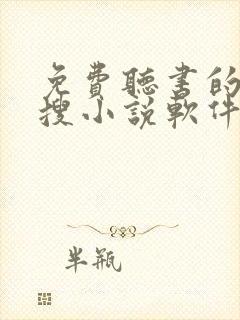 免費聽書的
搜小說軟件
半瓶